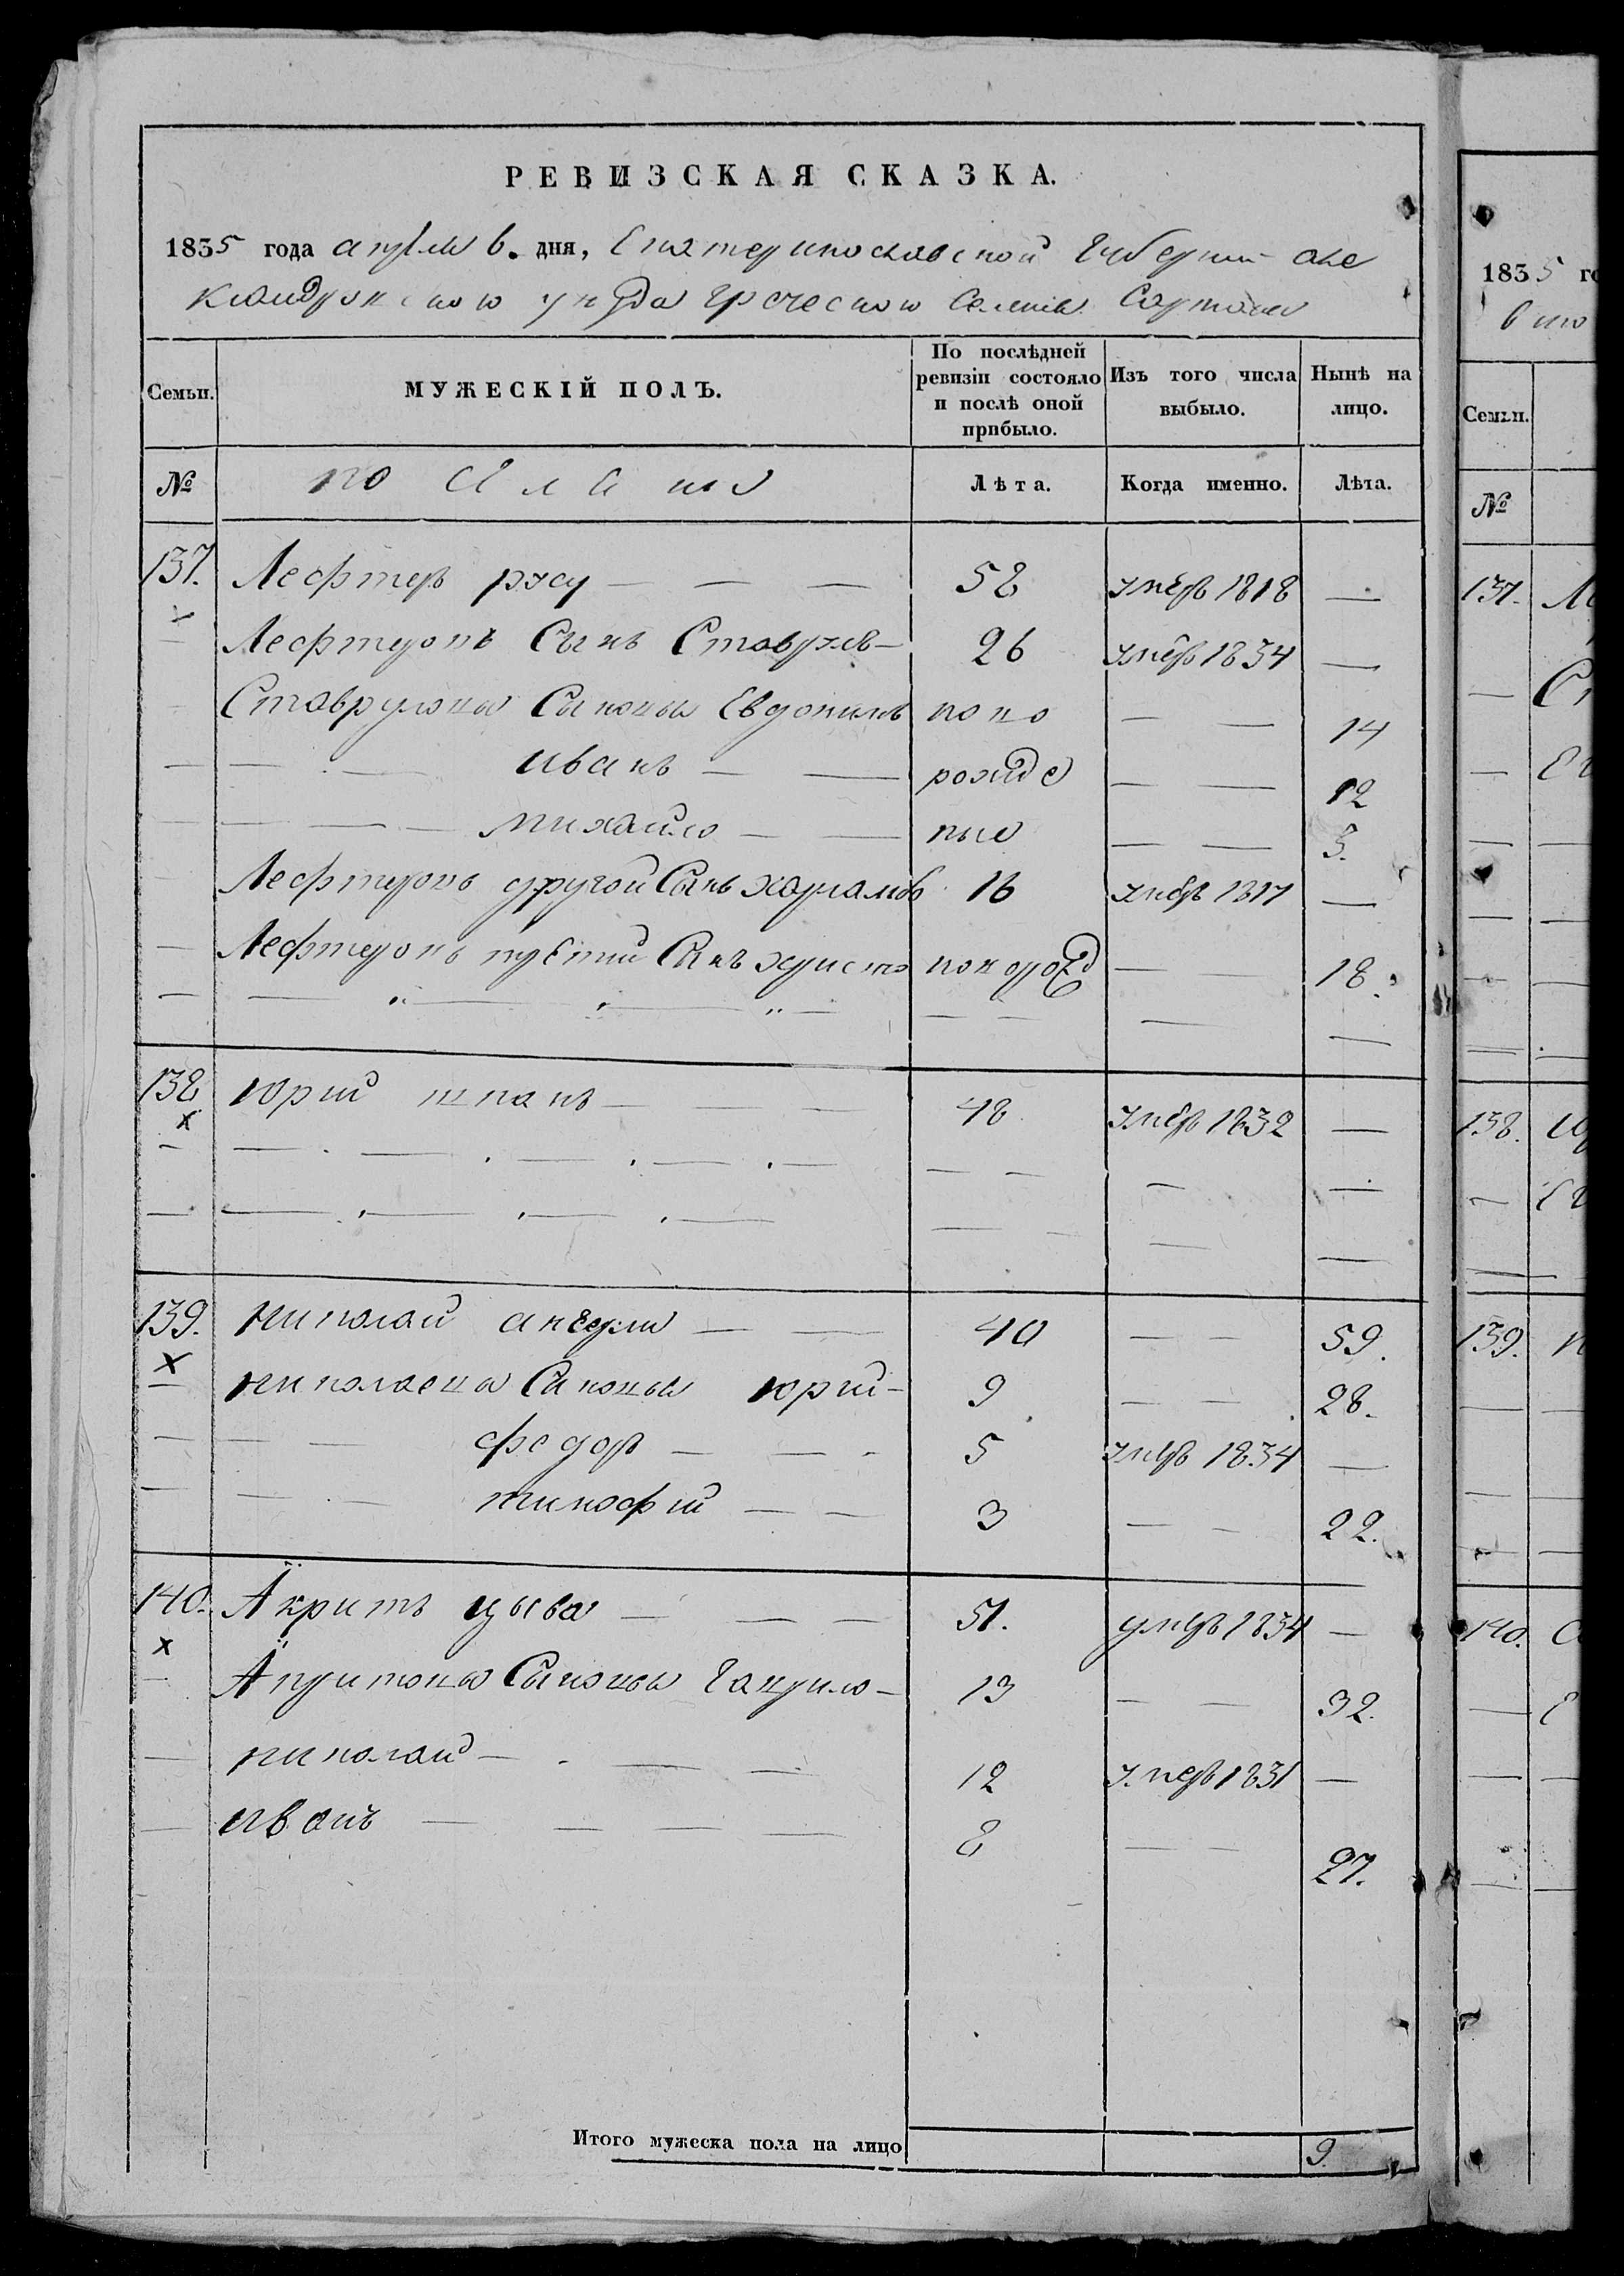 РЕВИЗСКАЯ СКАЗКА.
1835 года апреля 6. дня, Екатеринославской Губернии але
ксандровского уезда греческого Селения Сартаны
Семьи. МУЖЕСКІЙ ПОЛЪ. По послѣдней ревизіи состояло и послѣ оной прибыло. Изъ того числа выбыло. Нынѣ на лицо.
№ Лѣта. Когда именно. Лѣта.
137. Лефтеръ 58 умеръ 1818 —
Лефтеровъ Сынъ 26 умеръ 1834 —
Сыновья Евдокимъ ново — — 14
— — иванъ — — рожде — — 12
— — — михайло — — ные — — 3.
Лефтеровъ другой Сынъ харламъ 16 умеръ 1817 —
Лефтеровъ третий Сынъ христо новорожд — — 18.
138 юрий шпакъ — — — 48 умеръ 1832 —
139. николай ангели — — 40 — — 59.
николаевы Сыновья юрий — 9 — — 28.
— — федоръ — — - 5 умеръ 1834 —
— — тимофий — — 3 — — 22.
140. Акритъ цыба — — — 51. умеръ 1834 —
Акритовы Сыновья Гаврило — 13 — — 32.
николай — - — — 12 умеръ 1831 —
иванъ — — — — 8 — — 27.
Итого мужеска пола на лицо 9.
1835 го
Семьи.
№
137.
138.
139.
140.